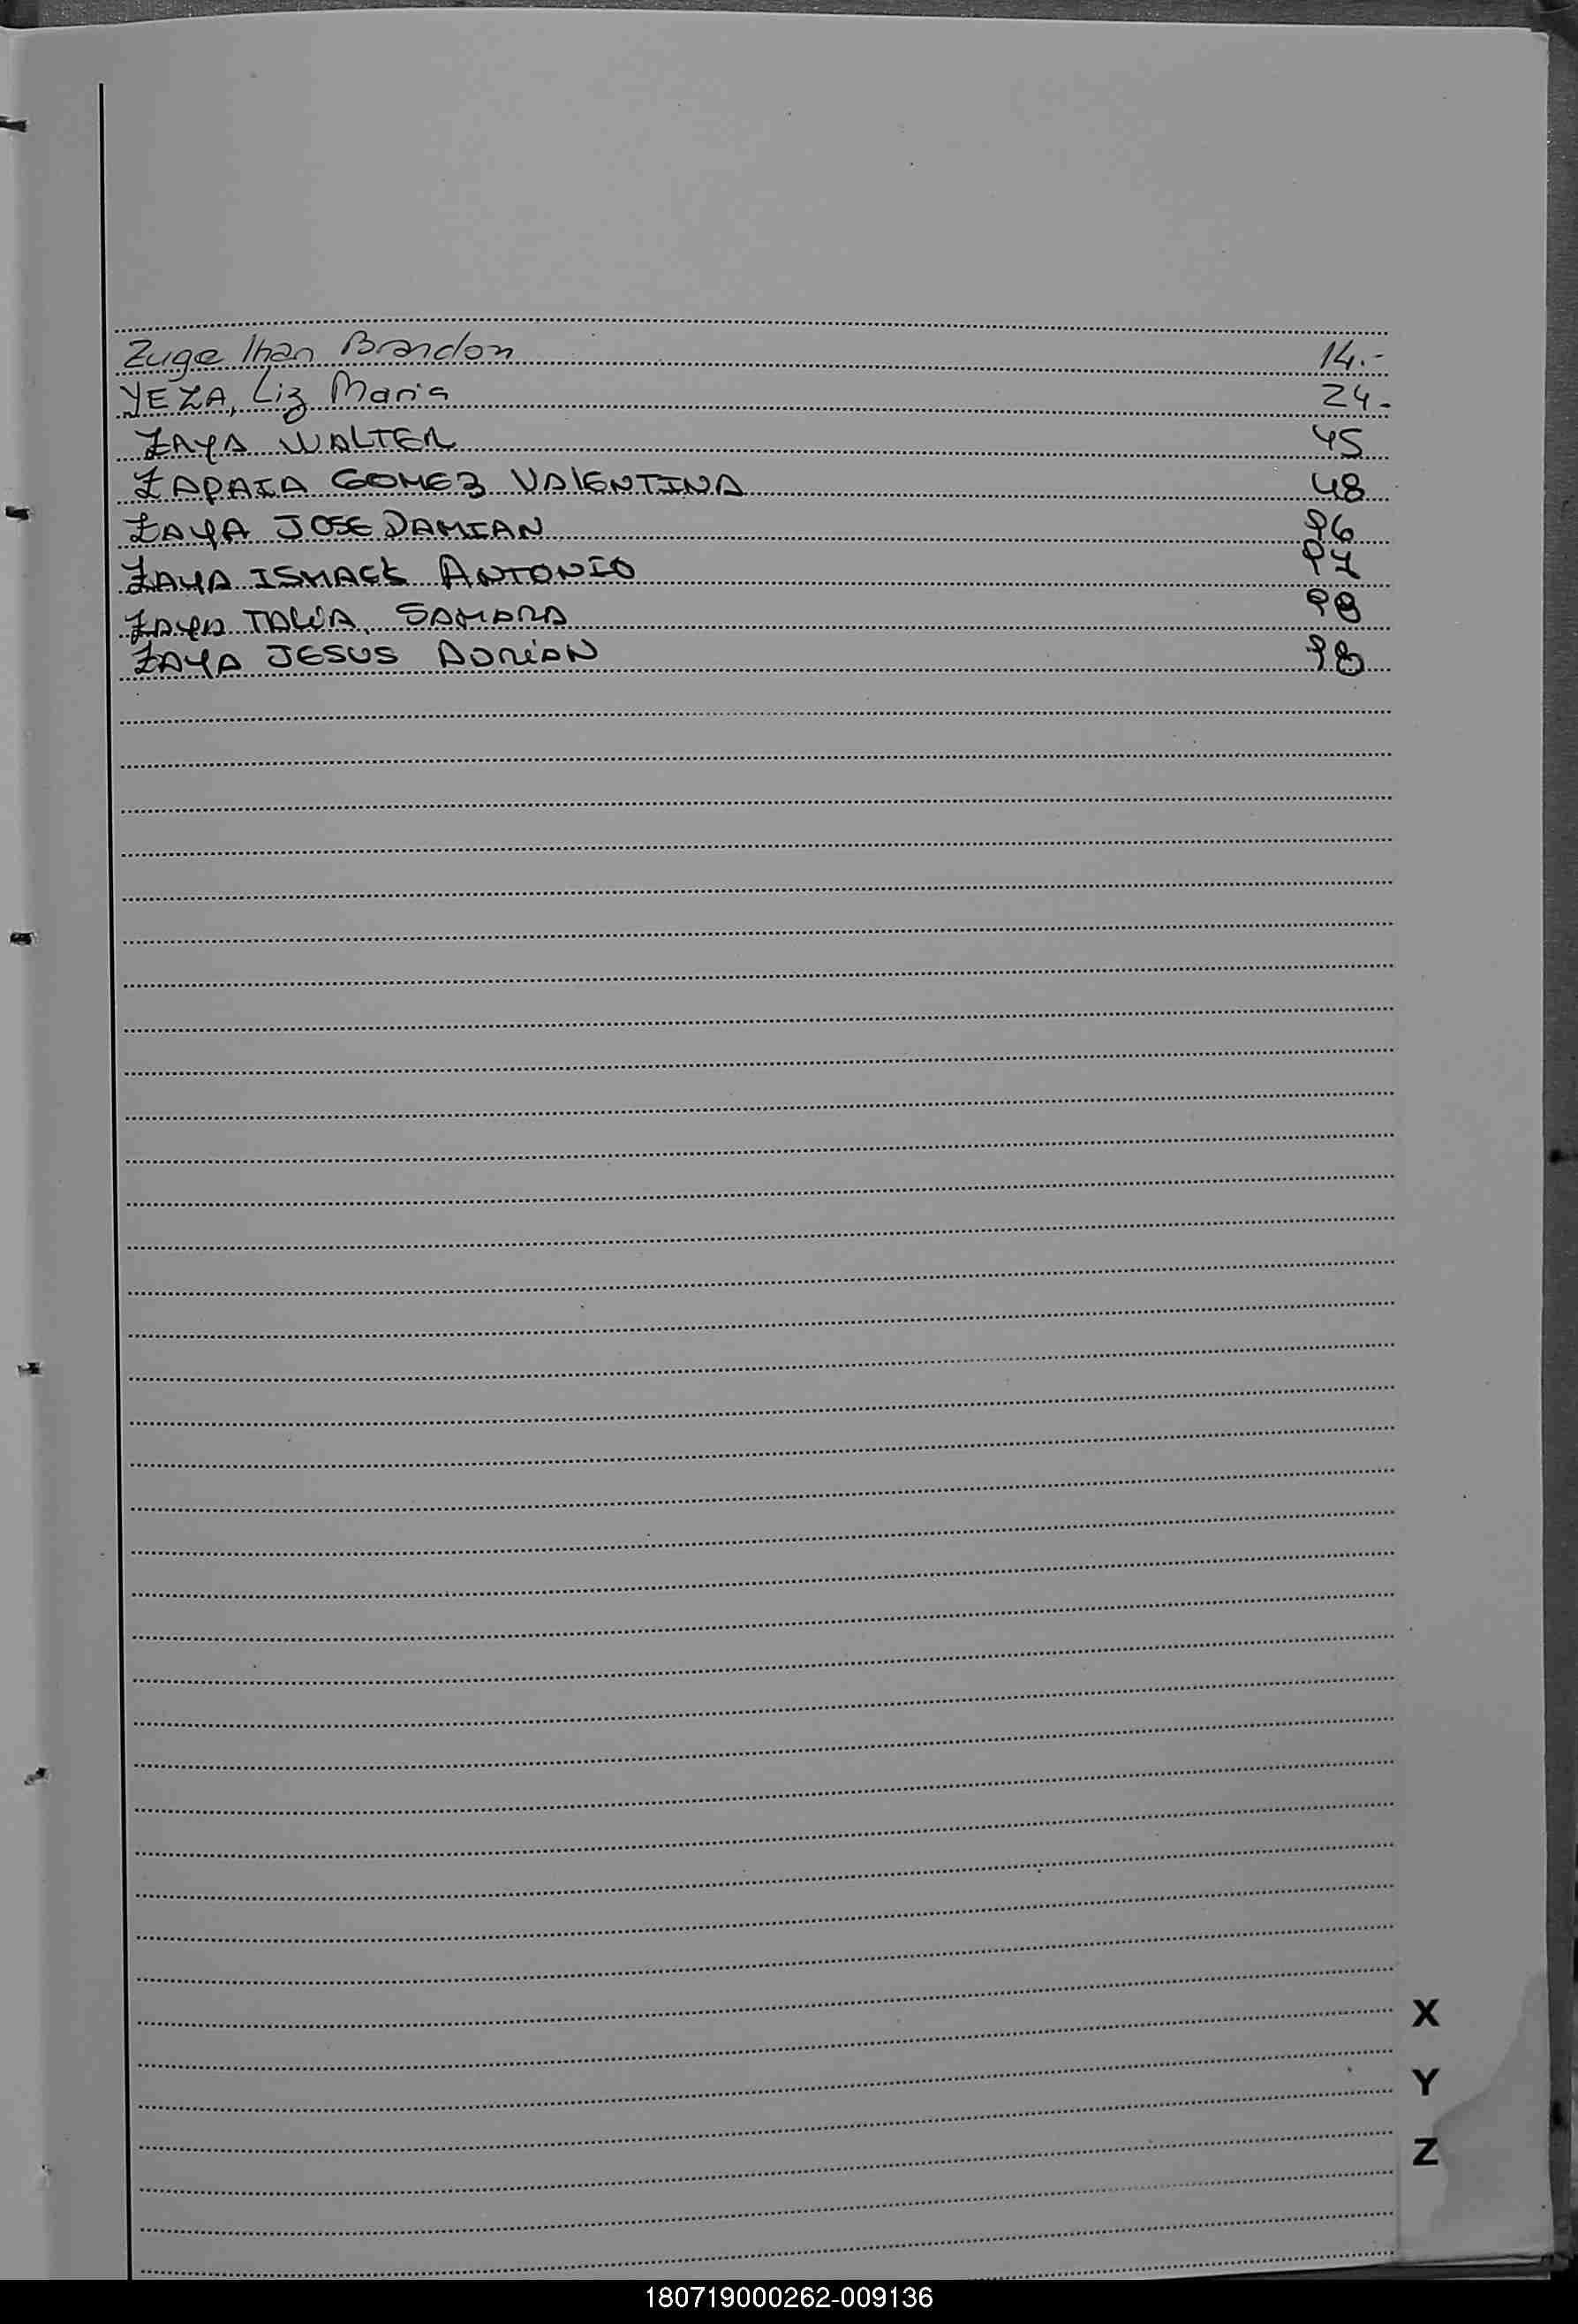 Zuge Ihan Brandon 14.-
YEZA, Liz Maria 24.-
ZAYA WALTER 45
ZAPATA GOMEZ VALENTINA 48
ZAYA JOSE DAMIAN 96
ZAYA ISMAEL ANTONIO 97
ZAYA TALIA SAMARA 98
ZAYA JESUS ADRIAN 98
X
Y
Z
180719000262-009136